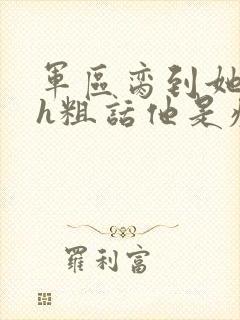 軍區齊到她
h粗話他是
羅利富